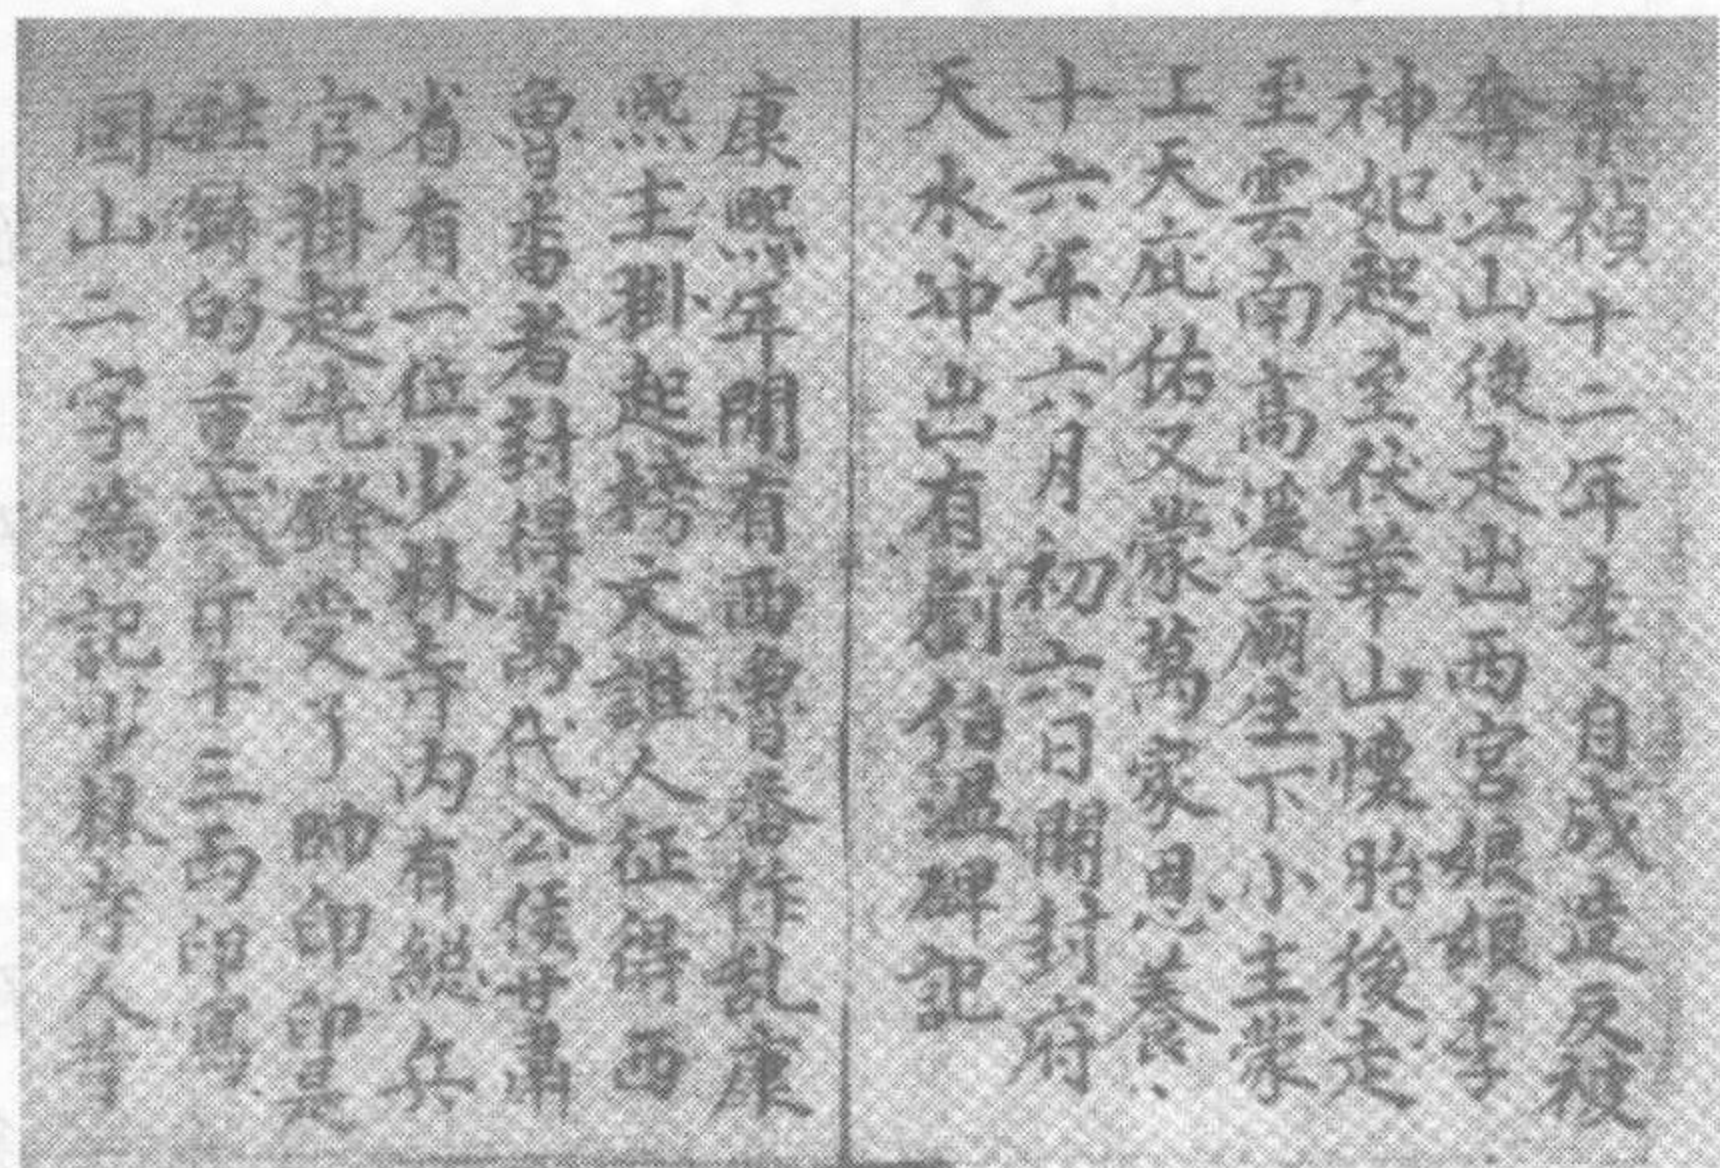 崇禎十二年李自成造反後
奪江山後走出西宮娘娘李
神妃起至伏華山懷胎後走
至雲南高溪廟生下小主蒙
上天庇佑又蒙萬家恩養、
十六年六月初六日開封府
天水冲出有劉伯溫碑記
康熙年間有西魯番作乱康
熙主掛起榜文誰人征得西
魯番者封得萬代公侯甘肅
省有一位少林寺内有總兵
官掛起 受了帥印印是
鑄的重式斤十三两印寫
山二字為記少林寺人等